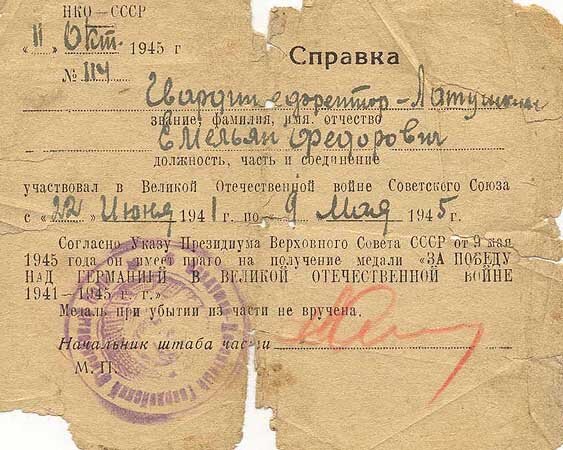 НКО — СССР
„11" Окт. 1945 г
№ 114
Справка
Гвардии ефрейтор - Латушкин
звание, фамилия, имя, отчество
Емельян Федорович
должность, часть и соединение
участвовал в Великой Отечественной войне Советского Союза
с «22» Июня 1941 г. по «9 Мая 1945 г.
Согласно Указу Президиума Верховного Совета СССР от 9 мая
1945 года он имеет право на получение медали «ЗА ПОБЕДУ
НАД ГЕРМАНИЕЙ В ВЕЛИКОЙ ОТЕЧЕСТВЕННОЙ ВОЙНЕ
1941—1945 г. г.»
Медаль при убытии из части не вручена.
Начальник штаба части
М. П.